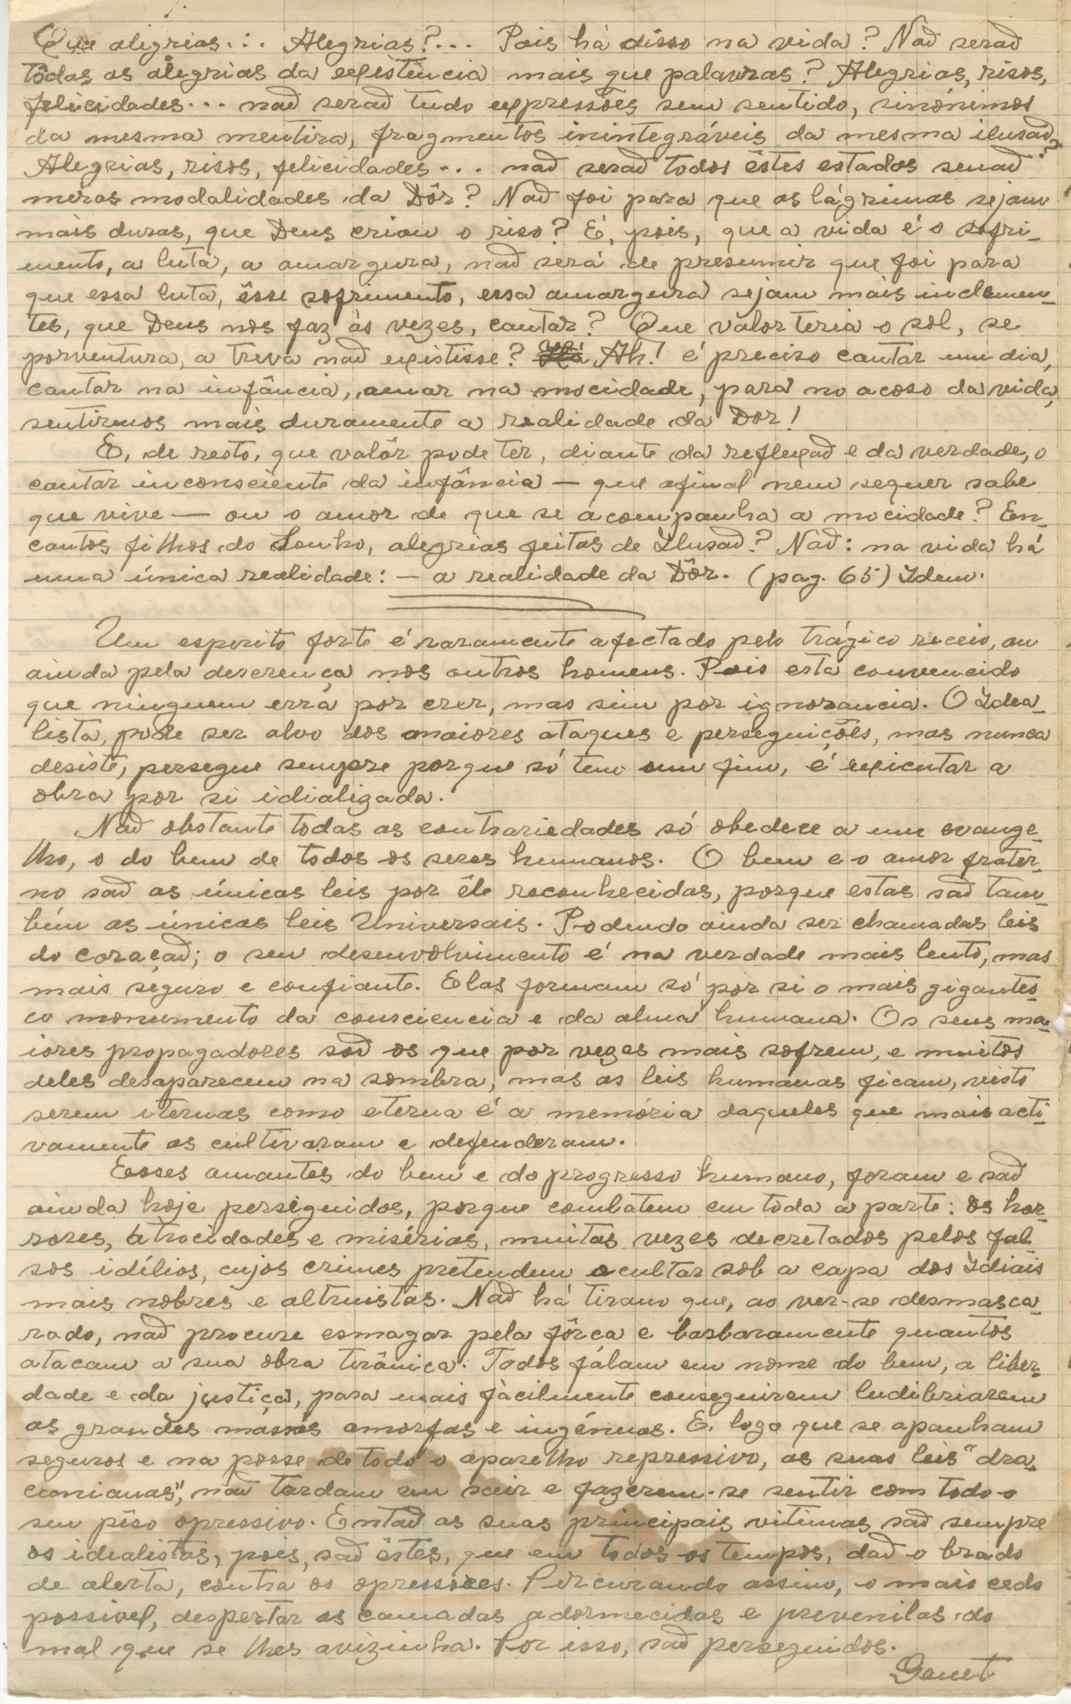 Que alegrias... Alegrias?... Pois há disso na vida? Não serão
tôdas as alegrias da existência mais que palavras? Alegrias, risos,
felicidades... não serão tudo expressões sem sentido, sinónimos
da mesma mentira, fragmentos inintegráveis da mesma ilusão?
Alegrias, risos, felicidades... não serão todos êstes estados senão
meras modalidades da Dôr? Não foi para que as lágrimas sejam
mais duras, que Deus criou o riso? É, pois, que a vida é o sofri-
mento, a luta, a amargura, não será de presumir que foi para
que essa luta, êsse sofrimento, essa amargura sejam mais inclemen-
tes, que Deus nos faz às vezes, cantar? Que valor teria o sol, se
porventura, a treva não existisse? Ah! é preciso cantar um dia,
cantar na infância, amar na mocidade, para no acoso da vida,
sentirmos mais duramente a realidade da Dor!
E, de resto, que valôr pode ter, diante da reflexão e da verdade, o
cantar inconsciente da infância — que afinal nem sequer sabe
que vive — ou o amor de que se acompanha a mocidade? En-
cantos filhos do Sonho, alegrias feitas de Ilusão? Não: na vida há
uma única realidade: — a realidade da Dôr. (pag. 65) Idem.
Um esporito forte é raramente afectado pelo trágico receio, ou
ainda pela descrença nos outros homens. Pois está convencido
que ninguem erra por crer, mas sim por ignorancia. O Idea-
lista, pode ser alvo dos maiores ataques e perseguições, mas nunca
desiste, persegue sempre porque só tem um fim, é exicutar a
obra por si idializada.
Não obstante todas as contrariedades só obedece a um evange-
lho, o do bem de todos os seres humanos. O bem e o amor frater-
no são as únicas leis por êle reconhecidas, porque estas são tam-
bém as únicas leis Universais. Podendo ainda ser chamadas leis
do coração; o seu desenvolvimento é na verdade mais lento, mas
mais seguro e confiante. Elas formam só por si o mais gigantes-
co monumento da consciencia e da alma humana. Os seus ma-
iores propagadores são os que por vezes mais sofrem, e muitos
deles desaparecem na sombra, mas as leis humanas ficam, visto
serem iternas como eterna é a memória daqueles que mais acti-
vamente as cultivaram e defenderam.
Esses amantes do bem e do progresso humano, foram e são
ainda hoje perseguidos, porque combatem em toda a parte: os hor-
rores, atrocidades e misérias, muitas vezes decretados pelos fal-
sos idílios, cujos crimes pretendem ocultar sob a capa dos Idiais
mais nobres e altruistas. Não há tirano que, ao ver-se desmasca-
rado, não procure esmagar pela fôrça e barbaramente quantos
atacam a sua obra tirânica. Todos fálam em nome do bem, a liber-
dade e da justiça, para mais fàcilmente conseguirem ludibriarem
as grandes massas amorfas e ingénuas. E, logo que se apanham
seguros e na posse de todo o aparelho repressivo, as suas leis "dra-
conianas", não tardam em sair e fazerem-se sentir com todo o
seu pêso opressivo. Então as suas principais vitimas são sempre
os idealistas, pois, são êstes, que em todos os tempos, dão o brado
de alerta, contra os opressôres. Percurando assim, o mais cedo
possivel, despertar as camadas adormecidas e prevenilas do
mal que se lhes avizinha. Por isso, são perseguidos.